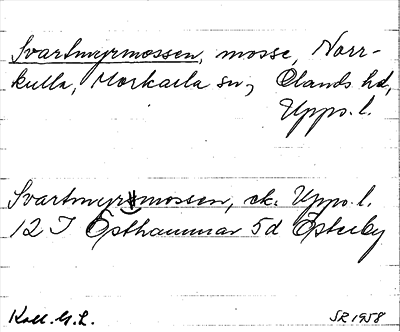 Svartmyrmossen, mosse, Norr-
kulla, Morkarla sn, Olands hd,
Upps. l.
Svartmyrmossen, ek. Upps. l.
12 I Östhammar 5d Österby
Koll. G.L.
SR 1958